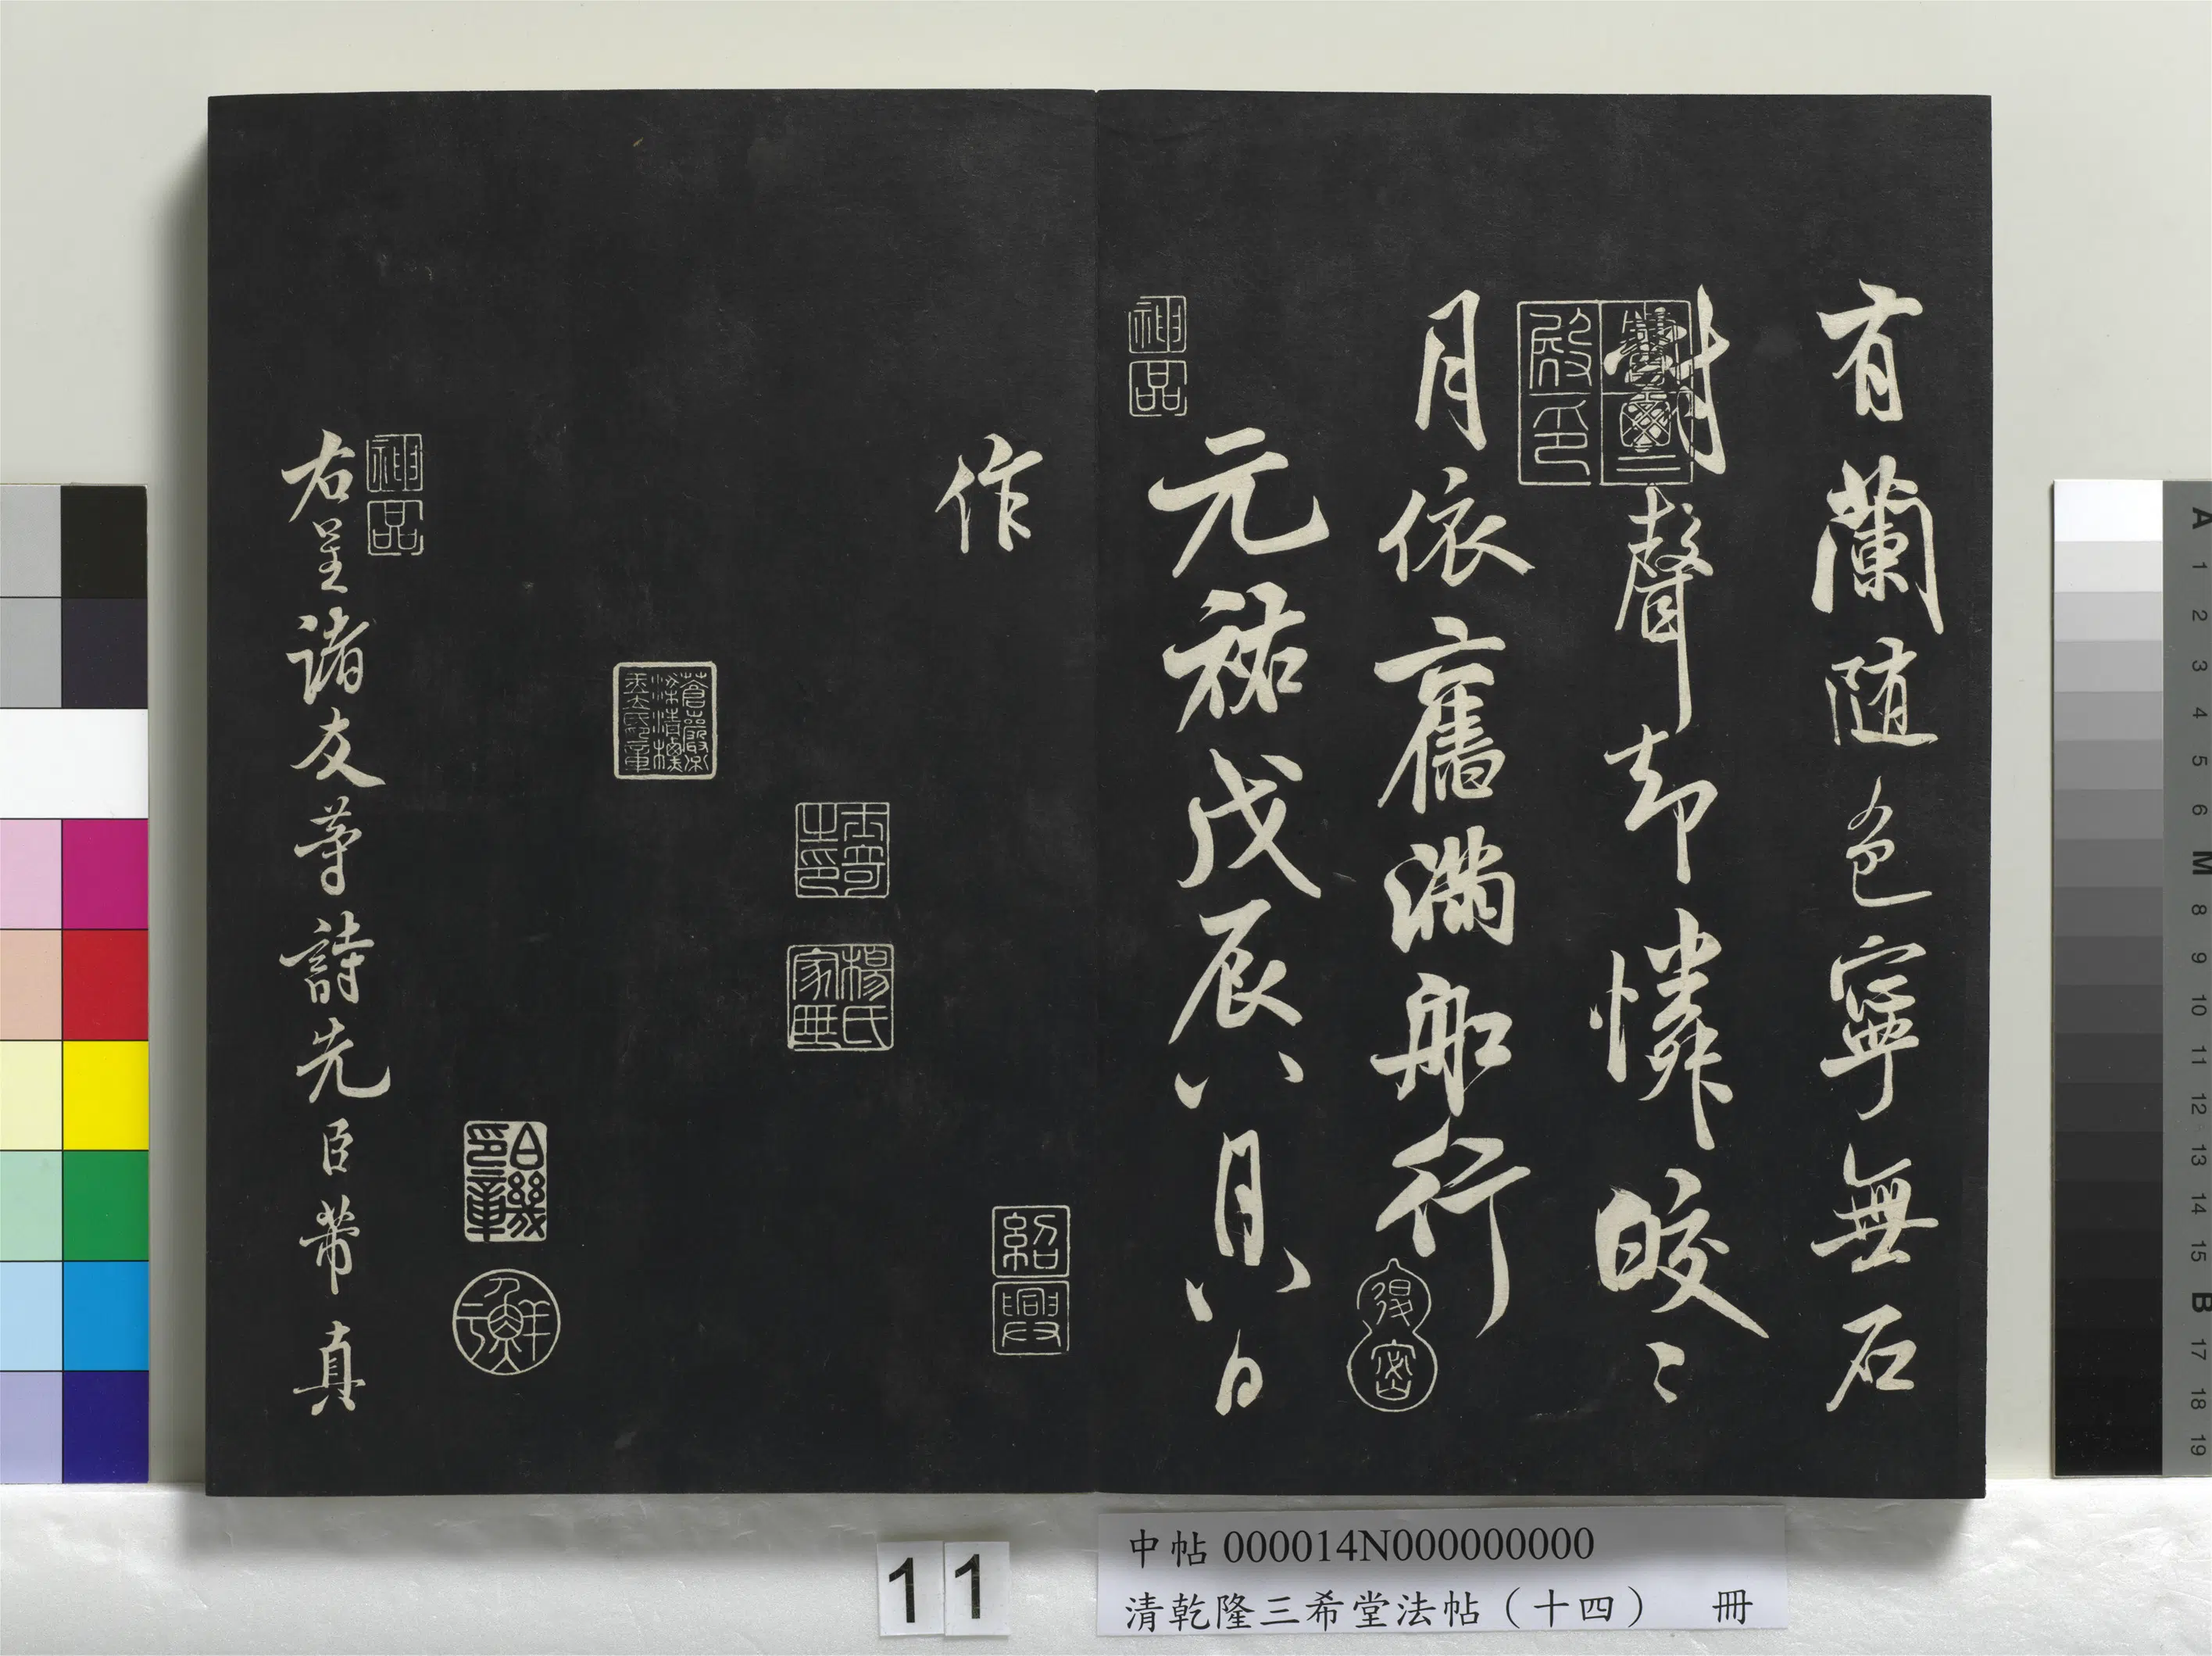 有蘭随色寧無石
對聲却憐皎〻
月依舊滿船行
神品
元祐戊辰八月八日
作
紹興
蒼巖子梁清標玉立氏印章
神品
右呈諸友等詩先臣芾真
11
中帖 000014N000000000
清乾隆三希堂法帖（十四） 冊
A 1 2 3 4 5 6 M 8 9 10 11 12 13 14 15 B 17 18 19